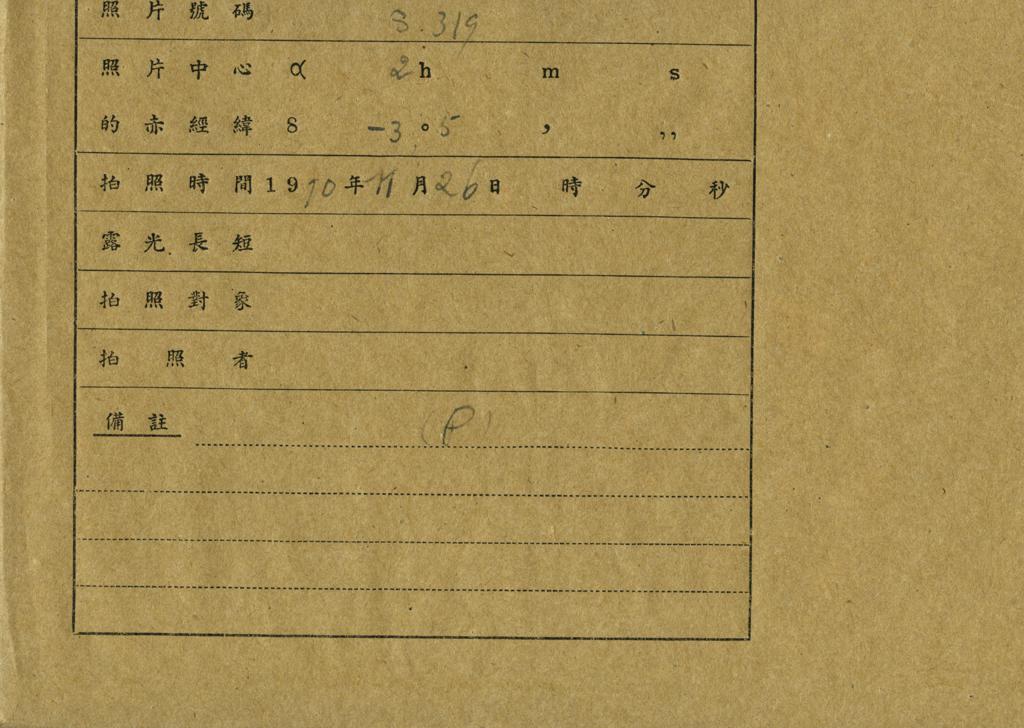 照片號碼 S.319
照片中心 α 2h m s
的赤經緯 δ -3°.5 ' ''
拍照時間1970年11月26日 時 分 秒
露光長短
拍照對象
拍照者
備註 (P)